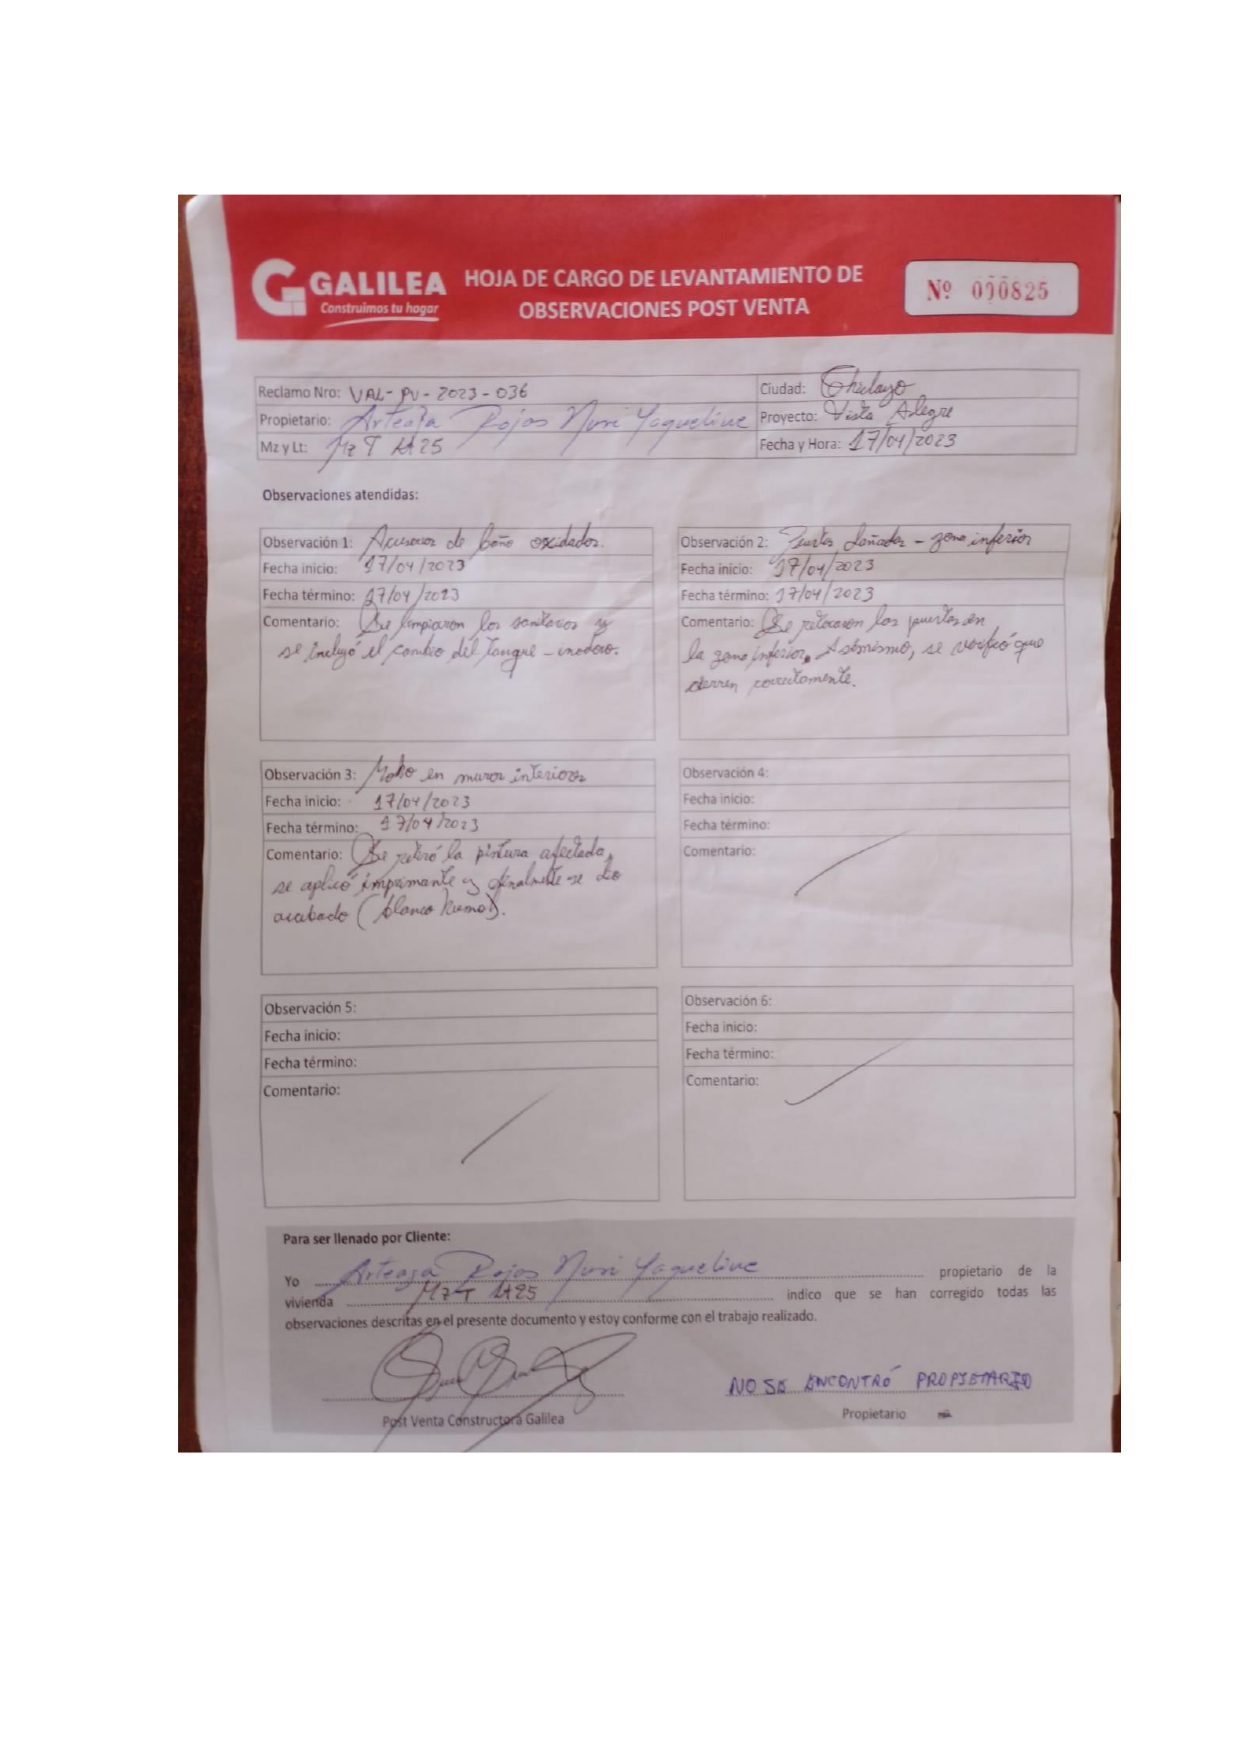 GALILEA
Construimos tu hogar
HOJA DE CARGO DE LEVANTAMIENTO DE
OBSERVACIONES POST VENTA
Nº 000825
Reclamo Nro: VAL-PV-2023-036
Ciudad: Chiclayo
Propietario: Arteaga Rojas Nuri Yaqueline
Proyecto: Vista Alegre
Mz y Lt: Mz T Lt 25
Fecha y Hora: 17/04/2023
Observaciones atendidas:
Observación 1: Accesorios de baño oxidados
Fecha inicio: 17/04/2023
Fecha término: 17/04/2023
Comentario: Se limpiaron los sanitarios y
se incluyó el cambio del tanque - inodoro.
Observación 2: Puertas dañadas - zona inferior
Fecha inicio: 17/04/2023
Fecha término: 17/04/2023
Comentario: Se retocaron las puertas en
la zona inferior. Asimismo, se verificó que
cierren correctamente.
Observación 3: Moho en muros interiores
Fecha inicio: 17/04/2023
Fecha término: 17/04/2023
Comentario: Se retiró la pintura afectada,
se aplicó imprimante y finalmente se dio
acabado (blanco humo).
Observación 4:
Fecha inicio:
Fecha término:
Comentario:
Observación 5:
Fecha inicio:
Fecha término:
Comentario:
Observación 6:
Fecha inicio:
Fecha término:
Comentario:
Para ser llenado por Cliente:
Yo Arteaga Rojas Nuri Yaqueline propietario de la
vivienda Mz T Lt 25 indico que se han corregido todas las
observaciones descritas en el presente documento y estoy conforme con el trabajo realizado.
NO SE ENCONTRÓ PROPIETARIO
Post Venta Constructora Galilea
Propietario